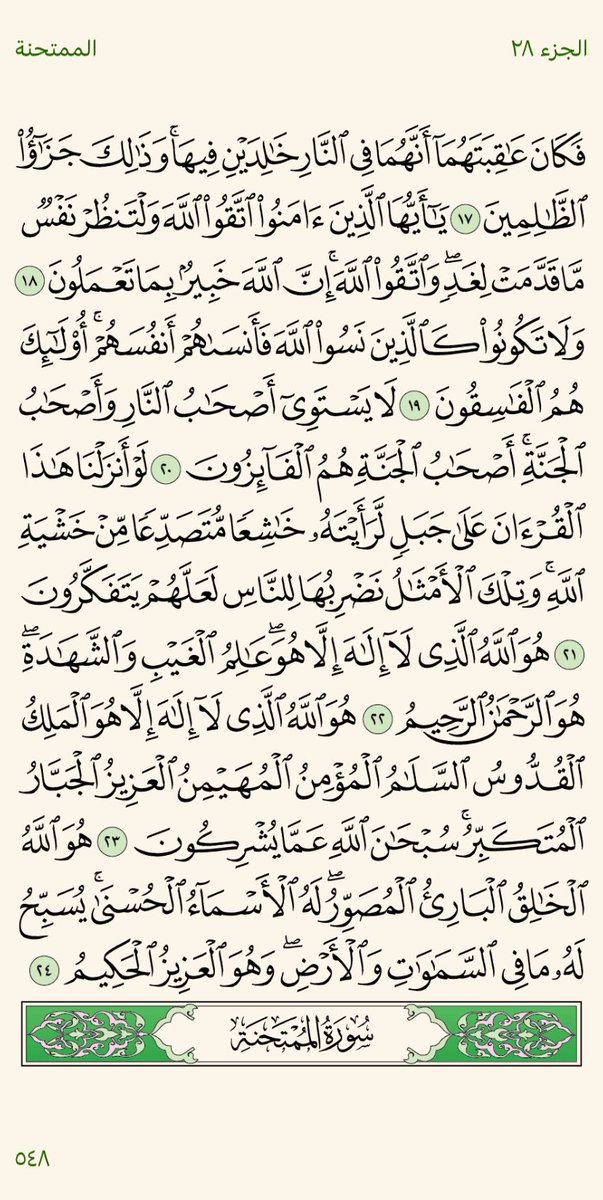 الجزء ٢٨ الممتحنة
فَكَانَ عَٰقِبَتَهُمَآ أَنَّهُمَا فِى ٱلنَّارِ خَٰلِدَيْنِ فِيهَا ۚ وَذَٰلِكَ جَزَٰٓؤُا۟
ٱلظَّٰلِمِينَ ١٧ يَٰٓأَيُّهَا ٱلَّذِينَ ءَامَنُوا۟ ٱتَّقُوا۟ ٱللَّهَ وَلْتَنظُرْ نَفْسٌ
مَّا قَدَّمَتْ لِغَدٍ ۖ وَٱتَّقُوا۟ ٱللَّهَ ۚ إِنَّ ٱللَّهَ خَبِيرٌۢ بِمَا تَعْمَلُونَ ١٨
وَلَا تَكُونُوا۟ كَٱلَّذِينَ نَسُوا۟ ٱللَّهَ فَأَنسَىٰهُمْ أَنفُسَهُمْ ۚ أُو۟لَٰٓئِكَ
هُمُ ٱلْفَٰسِقُونَ ١٩ لَا يَسْتَوِىٓ أَصْحَٰبُ ٱلنَّارِ وَأَصْحَٰبُ
ٱلْجَنَّةِ ۚ أَصْحَٰبُ ٱلْجَنَّةِ هُمُ ٱلْفَآئِزُونَ ٢٠ لَوْ أَنزَلْنَا هَٰذَا
ٱلْقُرْءَانَ عَلَىٰ جَبَلٍ لَّرَأَيْتَهُۥ خَٰشِعًا مُّتَصَدِّعًا مِّنْ خَشْيَةِ
ٱللَّهِ ۚ وَتِلْكَ ٱلْأَمْثَٰلُ نَضْرِبُهَا لِلنَّاسِ لَعَلَّهُمْ يَتَفَكَّرُونَ
٢١ هُوَ ٱللَّهُ ٱلَّذِى لَآ إِلَٰهَ إِلَّا هُوَ ۖ عَٰلِمُ ٱلْغَيْبِ وَٱلشَّهَٰدَةِ ۖ
هُوَ ٱلرَّحْمَٰنُ ٱلرَّحِيمُ ٢٢ هُوَ ٱللَّهُ ٱلَّذِى لَآ إِلَٰهَ إِلَّا هُوَ ٱلْمَلِكُ
ٱلْقُدُّوسُ ٱلسَّلَٰمُ ٱلْمُؤْمِنُ ٱلْمُهَيْمِنُ ٱلْعَزِيزُ ٱلْجَبَّارُ
ٱلْمُتَكَبِّرُ ۚ سُبْحَٰنَ ٱللَّهِ عَمَّا يُشْرِكُونَ ٢٣ هُوَ ٱللَّهُ
ٱلْخَٰلِقُ ٱلْبَارِئُ ٱلْمُصَوِّرُ ۖ لَهُ ٱلْأَسْمَآءُ ٱلْحُسْنَىٰ ۚ يُسَبِّحُ
لَهُۥ مَا فِى ٱلسَّمَٰوَٰتِ وَٱلْأَرْضِ ۖ وَهُوَ ٱلْعَزِيزُ ٱلْحَكِيمُ ٢٤
سُورَةُ ٱلْمُمْتَحَنَةِ
٥٤٨